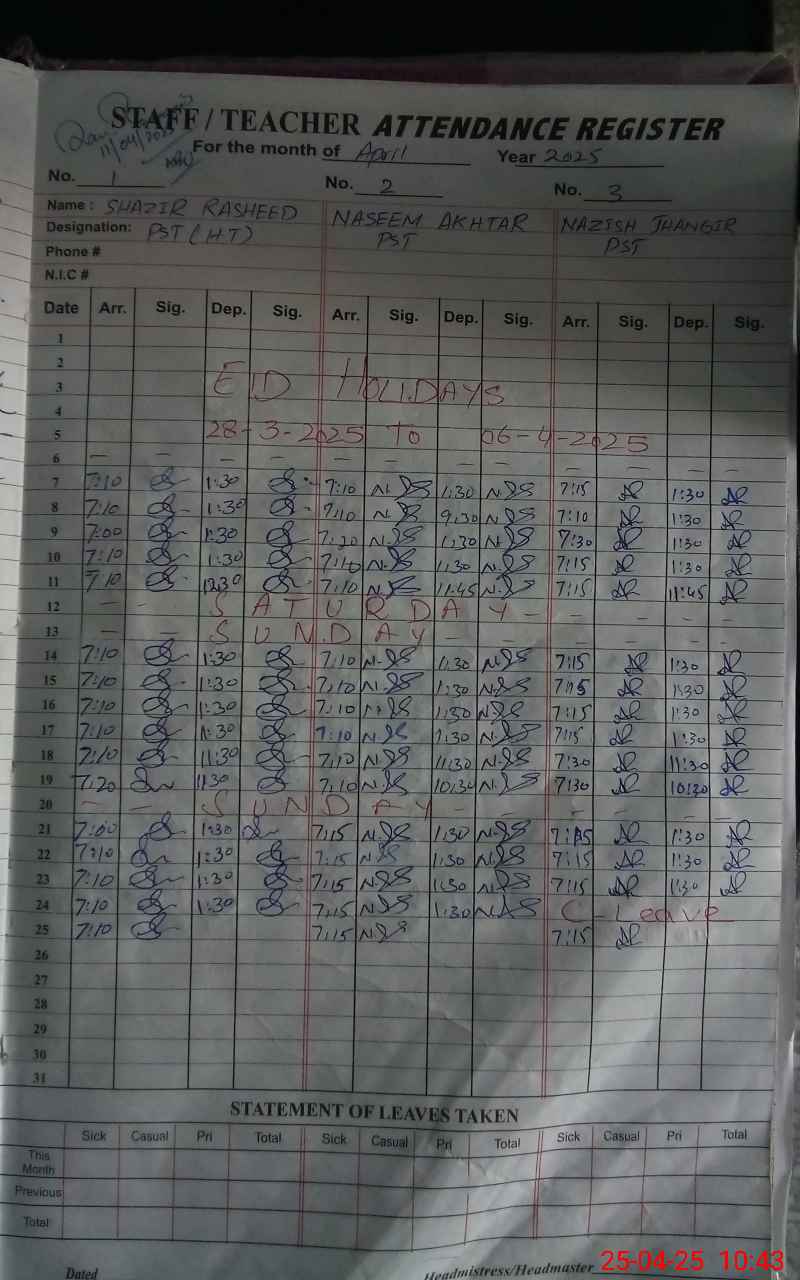 STAFF / TEACHER ATTENDANCE REGISTER
11/04/2025
For the month of April Year 2025
No. 1 No. 2 No. 3
Name : SHAZIR RASHEED NASEEM AKHTAR NAZISH JHANGIR
Designation: PST (H.T) PST PST
Phone #
N.I.C #
Date Arr. Sig. Dep. Sig. Arr. Sig. Dep. Sig. Arr. Sig. Dep. Sig.
1
2
3 EID HOLIDAYS
4
5 28-3-2025 TO 06-4-2025
6 — — — — — — — — — — — —
7 7:10 1:30 7:10 1:30 7:15 1:30
8 7:10 1:30 7:10 9:30 7:10 1:30
9 7:00 1:30 7:20 1:30 7:30 1:30
10 7:10 1:30 7:10 1:30 7:15 1:30
11 7:10 12:30 7:10 11:45 7:15 11:45
12 — - SATURDAY - — — — —
13 — — SUNDAY — — — — — —
14 7:10 1:30 7:10 1:30 7:15 1:30
15 7:10 1:30 7:10 1:30 7:15 1:30
16 7:10 1:30 7:10 1:30 7:15 1:30
17 7:10 1:30 7:10 1:30 7:15 1:30
18 7:10 11:30 7:10 11:30 7:30 11:30
19 7:20 11:30 7:10 10:30 7:30 10:30
20 — — SUNDAY — — — — — —
21 7:00 1:30 7:15 1:30 7:15 1:30
22 7:10 1:30 7:15 1:30 7:15 1:30
23 7:10 1:30 7:15 1:30 7:15 1:30
24 7:10 1:30 7:15 1:30 C-Leave
25 7:10 7:15 7:15
26
27
28
29
30
31
STATEMENT OF LEAVES TAKEN
Sick Casual Pri Total Sick Casual Pri Total Sick Casual Pri Total
This Month
Previous
Total
Dated Headmistress/Headmaster
25-04-25 10:43